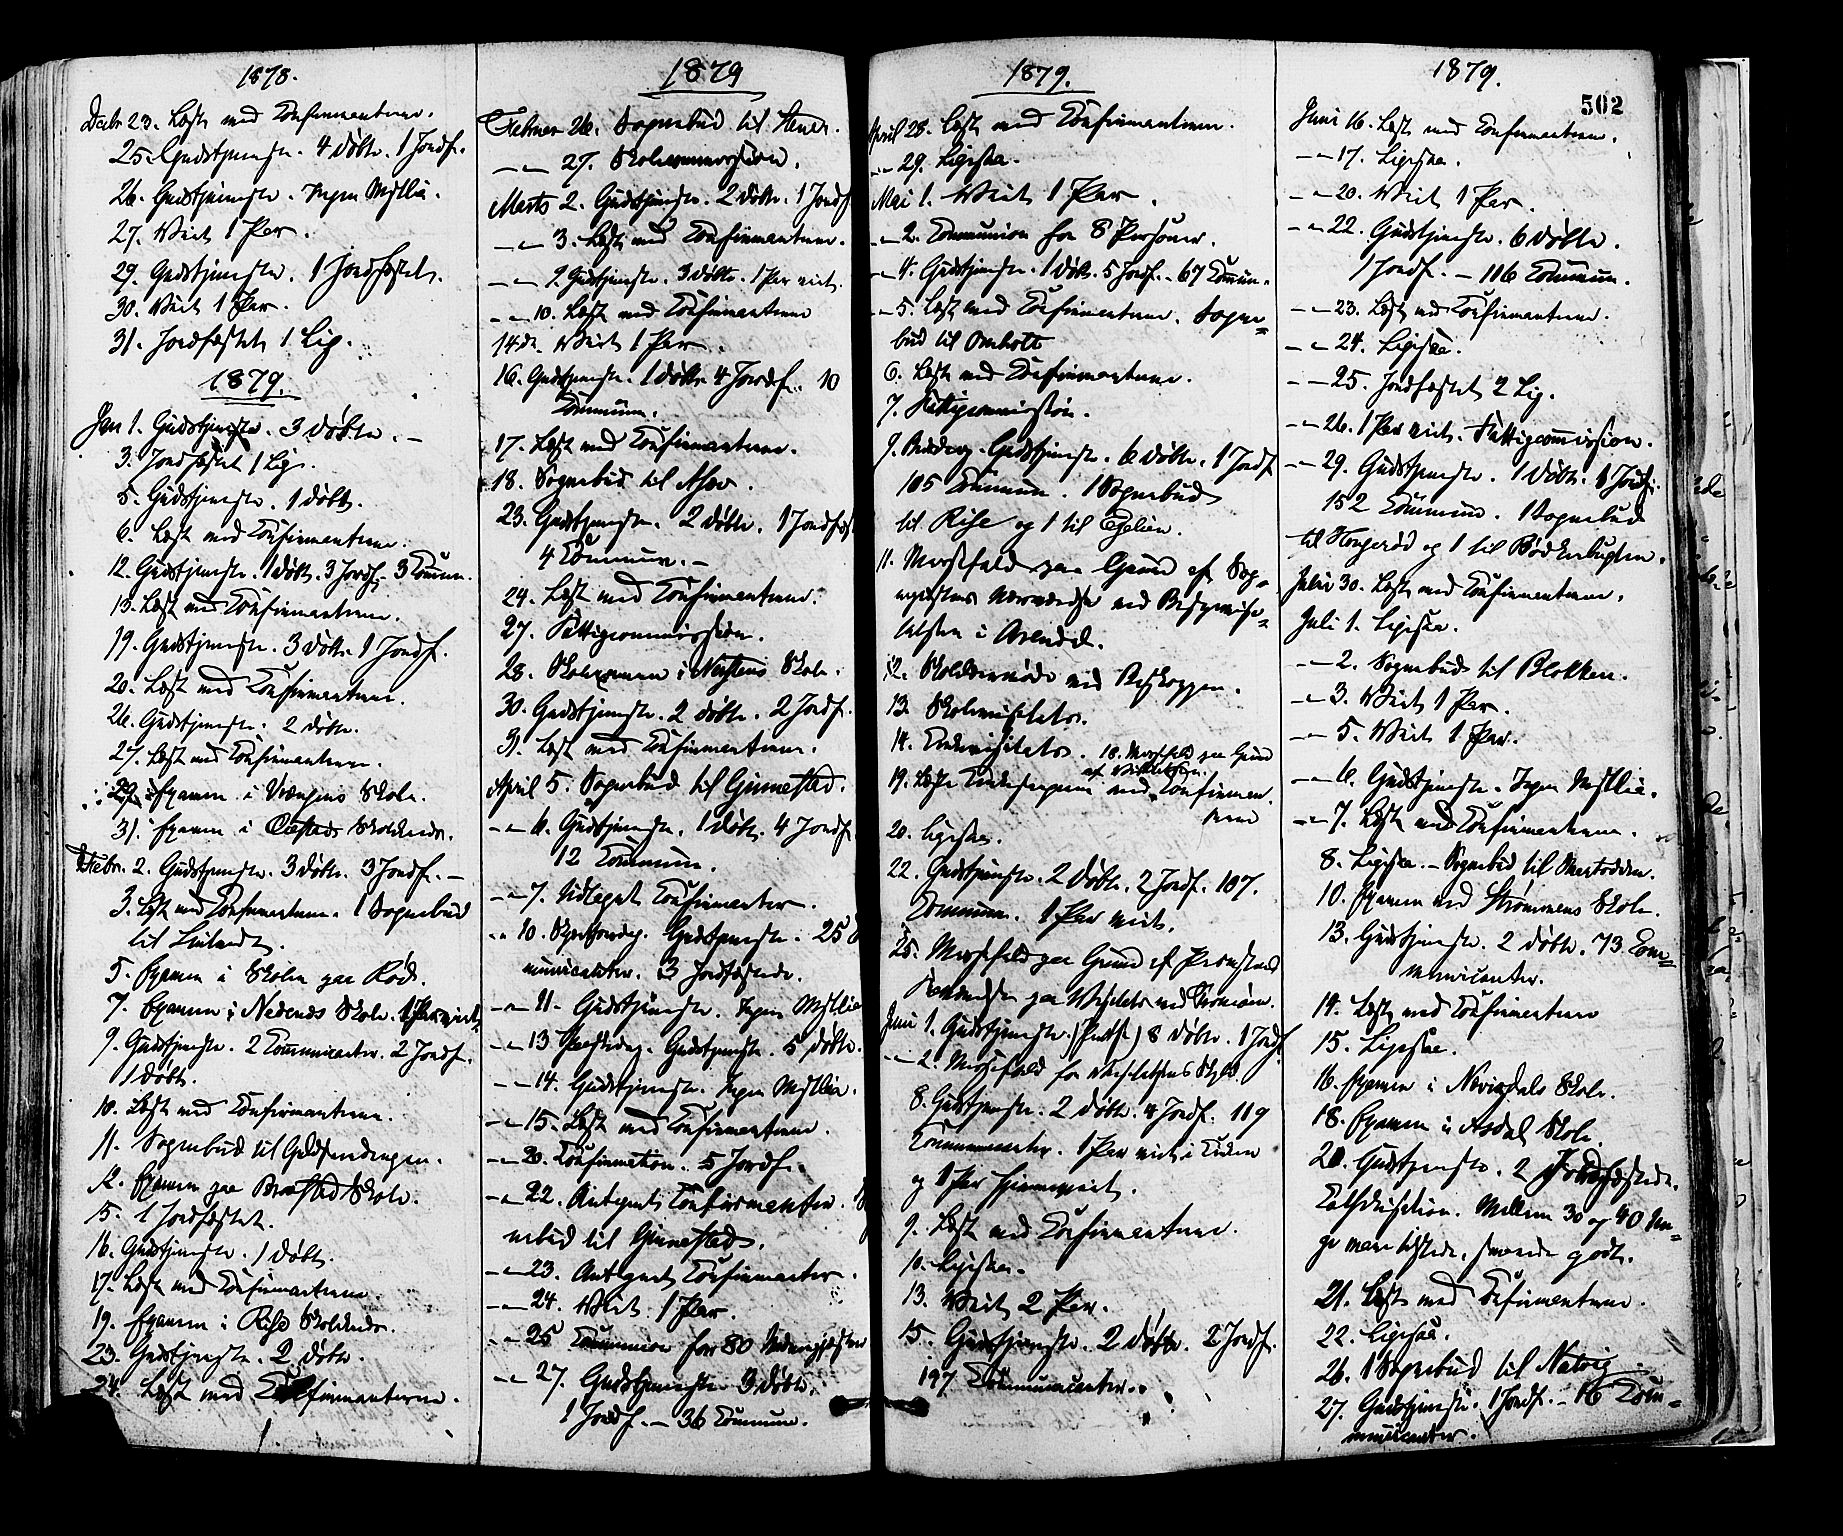 1878.
Decbr 23. Læst med Confirmanterne.
25. Gudstjeneste. 4 døbte. 1 Jordf.
26. Gudstjeneste. Ingen Ministerialia.
27. Viet 1 Par.
29. Gudstjeneste. 1 Jordfæstet.
30. Viet 1 Par.
31. Jordfæstet 1 Lig.
1879.
Jan 1. Gudstjeneste. 3 døbte. –
3. Jordfæstet 1 Lig.
5. Gudstjeneste. 1 døbt.
6. Læst med Confirmanterne.
12. Gudstjeneste. 1 døbt. 3 Jordf. 3 Commun.
13. Læst med Confirmanterne.
19. Gudstjeneste. 3 døbte. 1 Jordf.
20. Læst med Confirmanterne.
26. Gudstjeneste. 2 døbte.
27. Læst med Confirmanterne.
29. Examen i Vrængens Skole.
31. Examen i Skolekreds.
Febr. 2. Gudstjeneste. 3 døbte. 3 Jordf. –
3. Læst med Confirmanterne. 1 Sognebud
til
5. Examen i Skolen paa Rød.
7. Examen i Nedenes Skole. 1 Par viet.
9. Gudstjeneste. 2 Communicanter. 2 Jordf.
1 døbt.
10. Læst med Confirmanterne.
11. Sognebud til
12. Examen paa Bræstad Skole.
15. 1 Jordfæstet.
16. Gudstjeneste. 1 døbt.
17. Læst med Confirmanterne.
19. Examen i Rise Skolekreds.
23. Gudstjeneste. 2 døbte.
24. Læst med Confirmanterne.
1879
Februar 26. Sognebud til
– 27. Skolecommission.
Marts 2. Gudstjeneste. 2 døbte. 1 Jordf
– 3. Læst med Confirmanterne.
– 9 Gudstjeneste. 3 døbte. 1 Par viet.
– 10. Læst med Confirmanterne
14de. Viet 1 Par.
16. Gudstjeneste. 1 døbt. 4 Jordf. 10
Commun.
17. Læst med Confirmanterne.
18. Sognebud til
23. Gudstjeneste. 2 døbte. 1 Jordfæst
4 Commun. –
24. Læst med Confirmanterne.
27. Fattigcommission.
28. Skoleexamen i Skole.
30. Gudstjeneste. 2 døbte. 2 Jordf.
31. Læst med Confirmanterne.
April 5. Sognebud til Ginnestad.
– 6. Gudstjeneste. 1 døbt. 4 Jordf.
12 Commun.
– 7. Udleget Confirmanter.
– 10. Skjærtorsdag. Gudstjeneste. 25 Com
municanter. 3 Jordfæstede.
– 11. Gudstjeneste. Ingen Ministerialia
– 13 Paaskedag. Gudstjeneste. 5 døbte.
– 14. Gudstjeneste. Ingen Ministerialia.
– 15. Læst med Confirmanterne.
– 20. Confirmation. 5 Jordf.
– 22. Antegnet Confirmanter. Sog
nebud til Ginnestad.
– 23. Antegnet Confirmanter.
– 24. Viet 1 Par.
– 25 Communion for 80
– 27. Gudstjeneste 3 døbte.
1 Jordf. – 36 Commun.
1879.
April 28. Læst med Confirmanterne.
– 29. Ligesaa.
Mai 1. Viet 1 Par.
– 2. Communion for 8 Personer.
– 4. Gudstjeneste. 1 døbt. 5 Jordf. – 67 Commun.
– 5. Læst med Confirmanterne. Sogne-
bud til
6. Læst med Confirmanterne.
7. Fattigcommission.
9. Bededag. Gudstjeneste. 6 døbte. 1 Jordf.
105 Commun. 1 Sognebud
til Rise og 1 til
11. Messefald paa Grund af Sog-
nepræstens Nærværelse ved Bispevise-
tatsen i Arendal.
12. Skoldermøde ved Biskoppen.
13. Skolevisitats.
14. Kirkevisitats. 18. Messefald paa Grund
af
19. Læste med Confirman-
terne
20. Ligesaa.
22. Gudstjeneste. 2 døbte. 2 Jordf. 107.
Commun. 1 Par viet.
25. Messefald paa Grund af Præstens
paa ved
Juni 1. Gudstjeneste. (Pindse) 8 døbte. 1 Jordf.
– 2. Messefald for Skyld.
8. Gudstjeneste. 2 døbte. 4 Jordf. 119
Communicanter. 1 Par viet i Kirken
og 1 Par hjemmeviet.
9. Læst med Confirmanterne.
10. Ligesaa.
13. Viet 2 Par.
15. Gudstjeneste. 2 døbte. 2 Jordf.
197 Communicanter.
1879.
502
Juni 16. Læst med Confirmanterne.
– 17. Ligesaa.
– 20. Viet 1 Par.
– 22. Gudstjeneste. 6 døbte.
1 Jordf. – 116 Commun.
– 23. Læst med Confirmanterne.
– 24. Ligesaa.
– 25. Jordfæstet 2 Lig.
– 26. 1 Par viet. Fattigcommission.
– 29. Gudstjeneste. 1 døbt. 1 Jordf.
152 Commun. 1 Sognebud
til og 1 til Bødkerbugten.
Juni 30. Læst med Confirmanterne.
Juli 1. Ligesaa.
– 2. Sognebud til Blokken.
– 3. Viet 1 Par.
– 5. Viet 1 Par.
– 6. Gudstjeneste. Ingen Ministerialia.
– 7. Læst med Confirmanterne.
8. Ligesaa. – Sognebud til
10. Examen ved Strømmens Skole.
13. Gudstjeneste. 2 døbte. 73 Com-
municanter.
14. Læst med Confirmanterne
15. Ligesaa.
16. Examen i Nævisdals Skole.
18. Examen i Asdal Skole.
20. Gudstjeneste. 2 Jordfæstede.
Cathekisation. Mellem 30 og 40 Un-
ge mere tilstede, svarede godt.
21. Læst med Confirmanterne.
22. Ligesaa.
26. 1 Sognebud til Natvig.
27. Gudstjeneste. 1 Jordf. – 16 Com-
municanter.